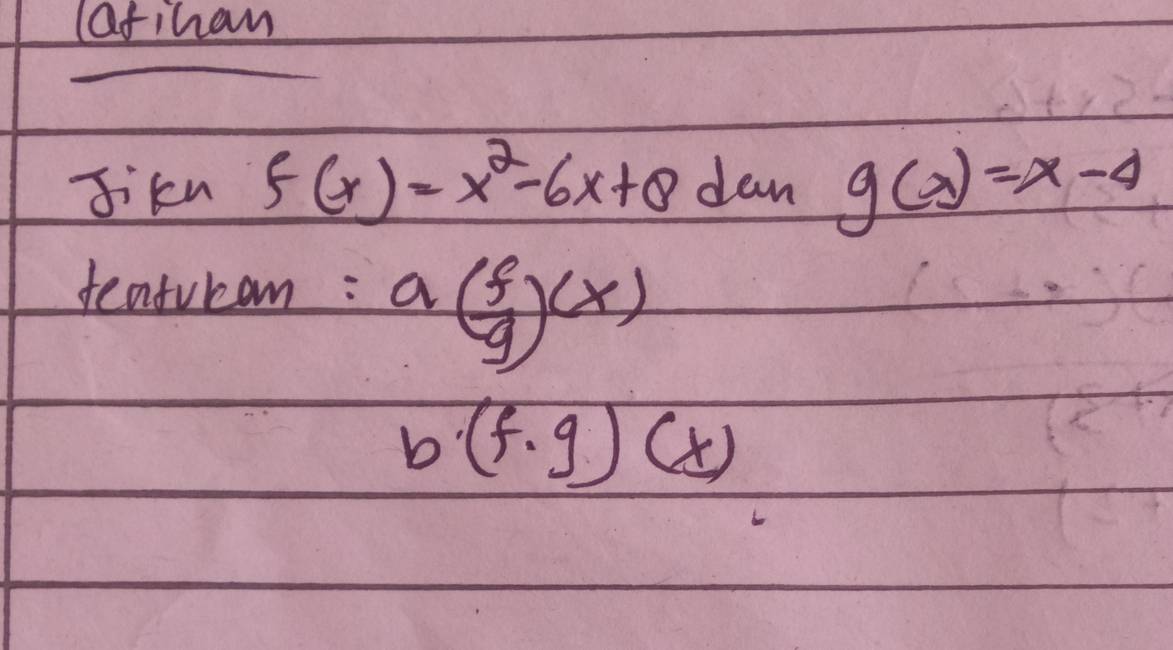 latihan
Jika f(x) = x²-6x+8 dan g(x) = x-4
tentukan : a (f/g)(x)
b. (f.g) (x)